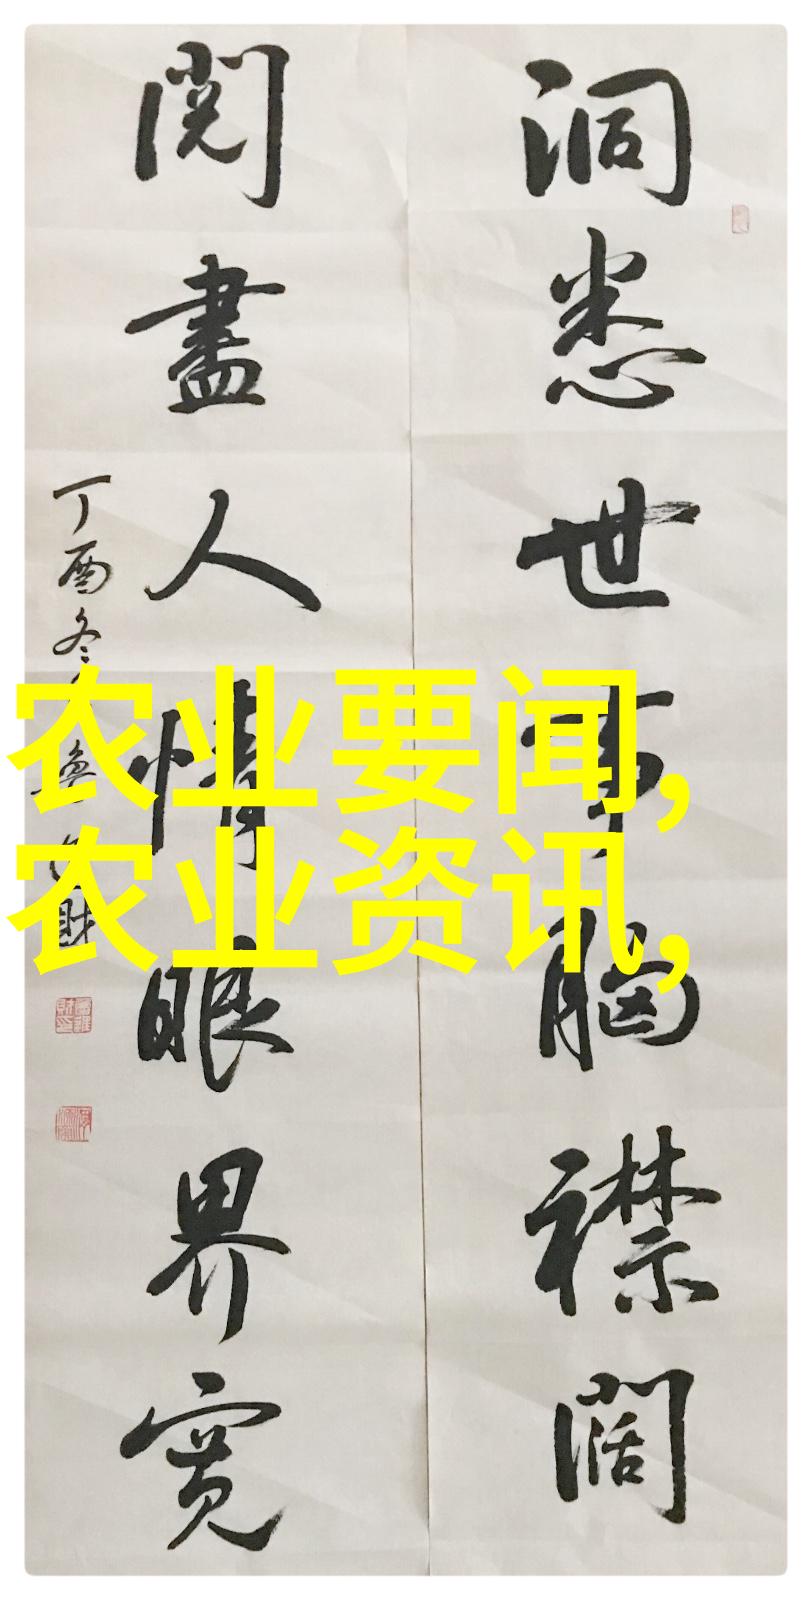 洞悉世事胸襟阔
阅尽人情眼界宽
丁酉冬
财
农业要闻,
农业资讯,